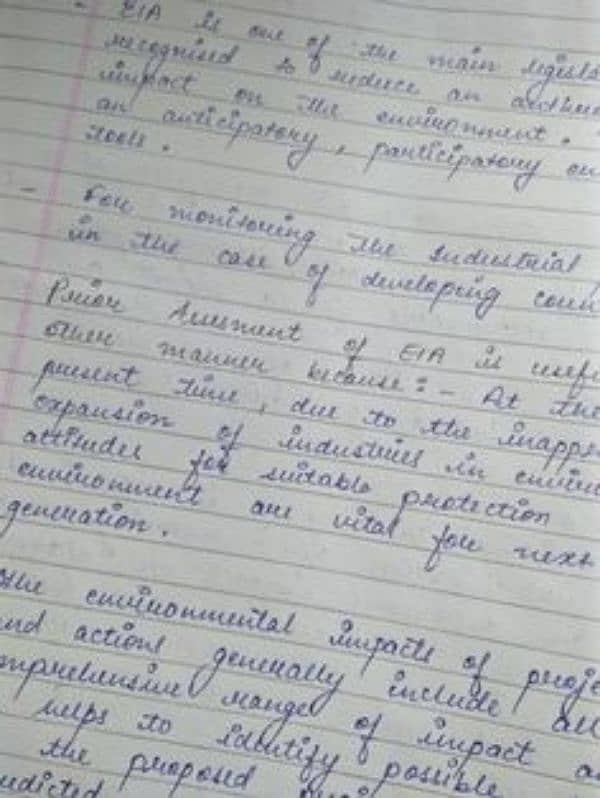 - EIA is one of the main legisla
recognised to reduce an
impact on the environment.
an anticipatory, participatory en
tools.
- For monitoring the Industrial
in the case of developing coun
Prior Assesment of EIA is usef
other manner because:- At the
present time, due to the inappr
expansion of industries in enviro
attitudes for suitable protection
environment are vital for next
generation.
the environmental impacts of proje
and actions generally include all
mprehensive range of impact a
helps to identify possible
the proposed
edicted